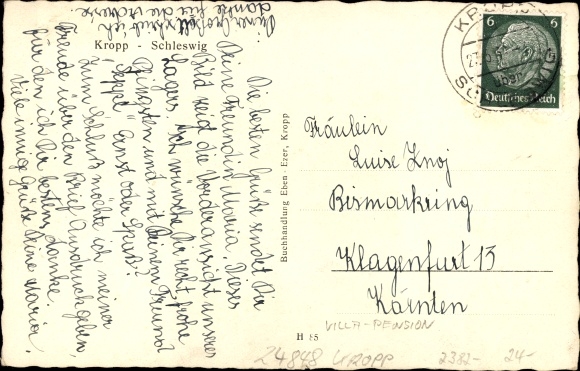 Kropp - Schleswig
Die besten Grüße sendet Dir
Deine Freundin Maria. Dieses
Bild zeigt die Vorderansicht unseres
Lagers. Ich wünsche Dir recht frohe
Pfingsten und mit Deinem Freund
"Seppl" Ernst oder Spass!
Zum Schluß möchte ich meiner
Freude über den Brief Ausdruck geben,
für den ich Dir bestens danke.
Viele innige Grüße Deine Maria.
danke für die
Buchhandlung Eben-Ezer, Kropp
H 85
KROPP
6 6
Deutsches Reich
Fräulein
Luise Knoj
Bismarkring
Klagenfurt 13
Kärnten
VILLA-PENSION
24848 KROPP
2382-
24-